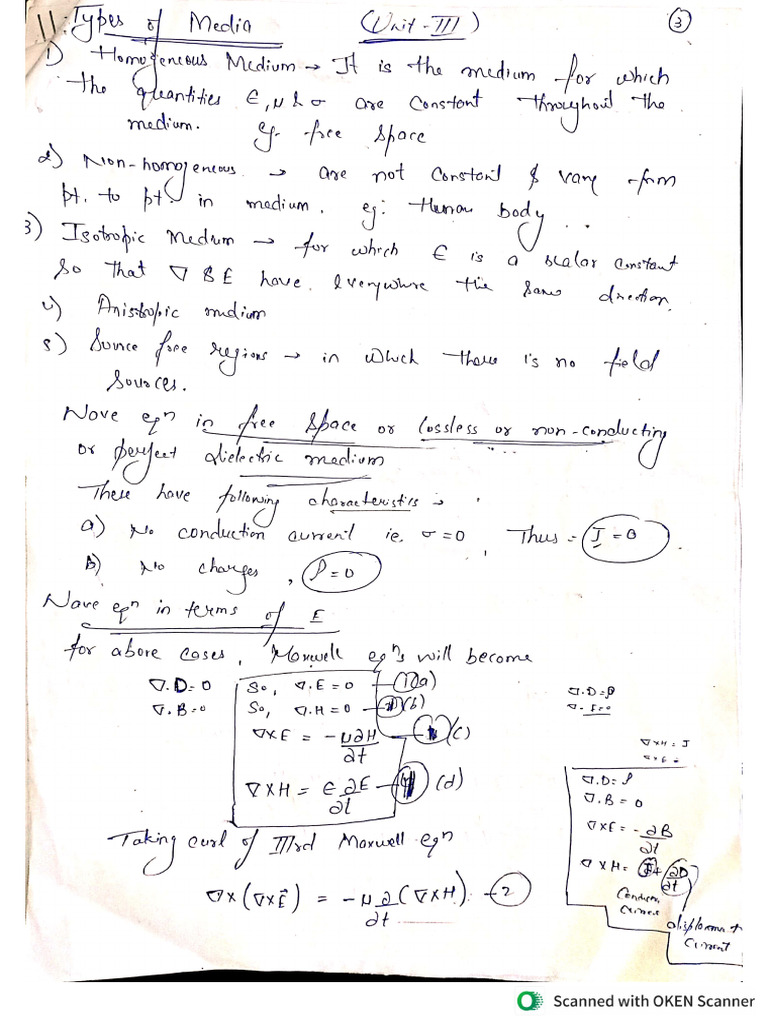 11. Types of Media (Unit-III) 3
1) Homogeneous Medium → It is the medium for which
the quantities ϵ, μ & σ are constant throughout the
medium. eg- free space
2) Non-homogeneous → are not constant & vary from
pt. to pt. in medium. eg: Human body
3) Isotropic Medium → for which ϵ is a scalar constant
so that ∇ & E have everywhere the same direction.
4) Anistropic medium
5) Source free regions → in which there is no field
sources.
Wave eqn in free space or lossless or non-conducting
or perfect dielectric medium
These have following characteristics :
a) No conduction current ie. σ=0, Thus = J = 0
B) No charges, ρ=0
Wave eqn in terms of E
for above cases, Maxwell eqn's will become
∇.D=0 So, ∇.E=0 —1(a)
∇.B=0 So, ∇.H=0 — (b)
∇×E = -μ∂H/∂t — (c)
∇×H = ϵ∂E/∂t — (d)
Taking curl of IIIrd Maxwell eqn
∇×(∇×E) = -μ ∂/∂t (∇×H) —2
∇.D=ρ
∇×H= J
∇.D= ρ
∇.B = 0
∇×E= -∂B/∂t
∇×H= J+ ∂D/∂t
Current
Current
Scanned with OKEN Scanner